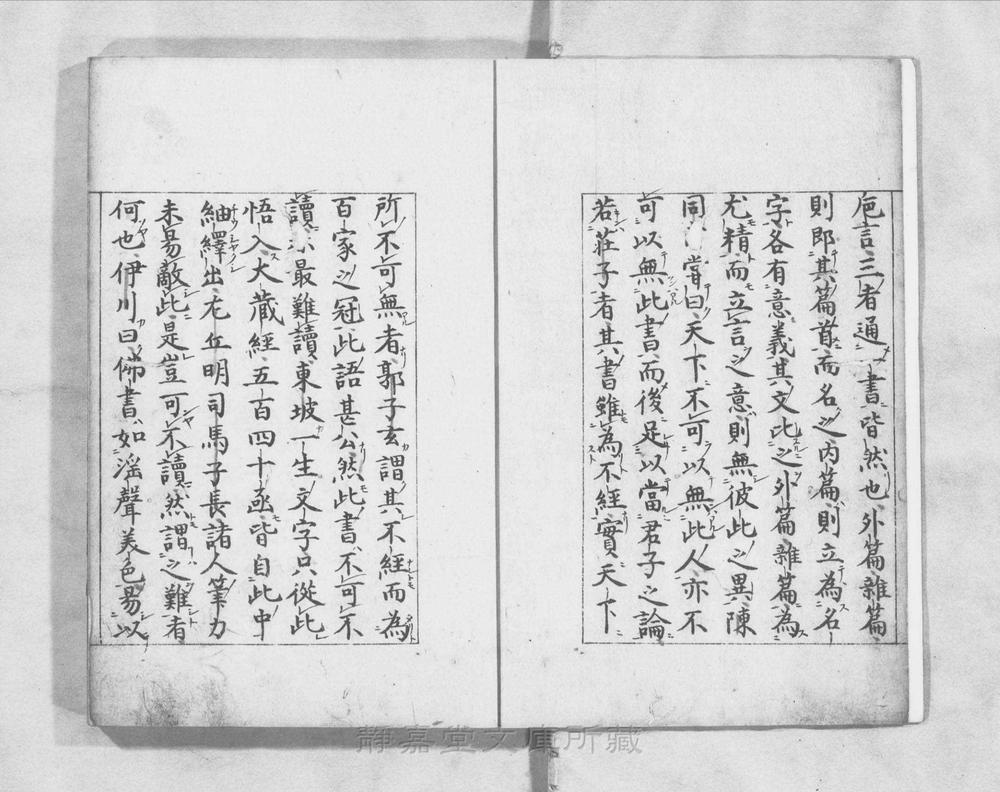 巵言三者通一書皆然也外篇雜篇
則即其篇首而名之内篇則立為名
字各有意義其文比之外篇雜篇為
尤精而立言之意則無彼此之異陳
同甫嘗曰天下不可以無此人亦不
可以無此書而後足以當君子之論
若莊子者其書雖為不經實天下
所不可無者郭子玄謂其不經而為
百家之冠此語甚公然此書不可不
讀亦最難讀東坡一生文字只從此
悟入大藏經五百四十凾皆自此中
紬繹出左丘明司馬子長諸人筆力
未易敵此是豈可不讀然謂之難者
何也伊川曰佛書如滛聲美色易以
靜嘉堂文庫所藏